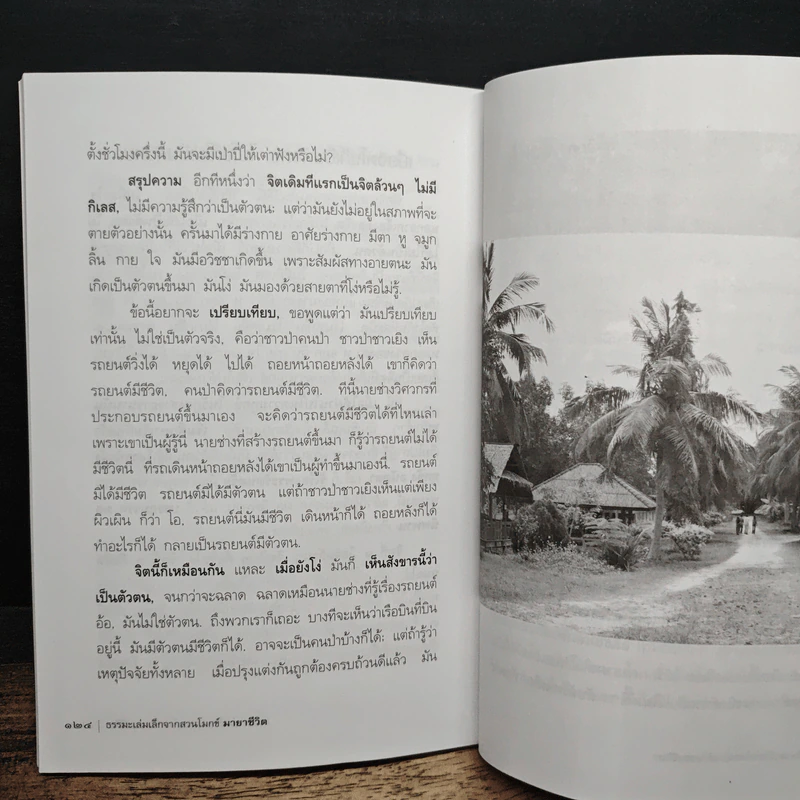 ตั้งชั่วโมงครึ่งนี้ มันจะมีเป่าปี่ให้เต่าฟังหรือไม่?
สรุปความ อีกทีหนึ่งว่า จิตเดิมทีแรกเป็นจิตล้วนๆ ไม่มี
กิเลส, ไม่มีความรู้สึกว่าเป็นตัวตน; แต่ว่ามันยังไม่อยู่ในสภาพที่จะ
ตายตัวอย่างนั้น ครั้นมาได้มีร่างกาย อาศัยร่างกาย มีตา หู จมูก
ลิ้น กาย ใจ มันมีอวิชชาเกิดขึ้น เพราะสัมผัสทางอายตนะ มัน
เกิดเป็นตัวตนขึ้นมา มันโง่ มันมองด้วยสายตาที่โง่หรือไม่รู้.
ข้อนี้อยากจะ เปรียบเทียบ, ขอพูดแต่ว่า มันเปรียบเทียบ
เท่านั้น ไม่ใช่เป็นตัวจริง, คือว่าชาวป่าคนป่า ชาวป่าชาวเยิง เห็น
รถยนต์วิ่งได้ หยุดได้ ไปได้ ถอยหน้าถอยหลังได้ เขาก็คิดว่า
รถยนต์มีชีวิต, คนป่าคิดว่ารถยนต์มีชีวิต. ทีนี้นายช่างวิศวกรที่
ประกอบรถยนต์ขึ้นมาเอง จะคิดว่ารถยนต์มีชีวิตได้ที่ไหนเล่า
เพราะเขาเป็นผู้รู้นี่ นายช่างที่สร้างรถยนต์ขึ้นมา ก็รู้ว่ารถยนต์ไม่ได้
มีชีวิตนี่ ที่รถเดินหน้าถอยหลังได้เขาเป็นผู้ทำขึ้นมาเองนี่. รถยนต์
มิได้มีชีวิต รถยนต์มิได้มีตัวตน แต่ถ้าชาวป่าชาวเยิงเห็นแต่เพียง
ผิวเผิน ก็ว่า โอ, รถยนต์นี่มันมีชีวิต เดินหน้าก็ได้ ถอยหลังก็ได้
ทำอะไรก็ได้ กลายเป็นรถยนต์มีตัวตน.
จิตนี้ก็เหมือนกัน แหละ เมื่อยังโง่ มันก็ เห็นสังขารนี้ว่า
เป็นตัวตน, จนกว่าจะฉลาด ฉลาดเหมือนนายช่างที่รู้เรื่องรถยนต์
อ้อ, มันไม่ใช่ตัวตน. ถึงพวกเราก็เถอะ บางทีจะเห็นว่าเรือบินที่บิน
อยู่นี้ มันมีตัวตนมีชีวิตก็ได้. อาจจะเป็นคนป่าบ้างก็ได้; แต่ถ้ารู้ว่า
เหตุปัจจัยทั้งหลาย เมื่อปรุงแต่งกันถูกต้องครบถ้วนดีแล้ว มัน
๑๒๔ | ธรรมะเล่มเล็กจากสวนโมกข์ มายาชีวิต